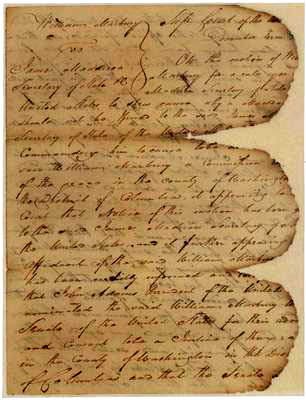 William Marbury Sup. Court of the
vs December term
James Madison On the motion of
Secretary of State of Marbury for a rule
United States to shew cause why a Manda
should not be issued to the said James
Secretary of State of the United
Commanding him to cause to be
said William Marbury a Commission
of the peace in the County of Washing
the district of Columbia, it appearing
Court that Notice of this motion has been
to the said James Madison Secretary of
the United States, and it further appearing
affidavit of the said William Marbury
had been informed and
that John Adams President of the United
nominated the said William Marbury to
Senate of the United States for their adv
and consent to be a Justice of the
in the County of Washington in the Dis
of Columbia and that the Senate